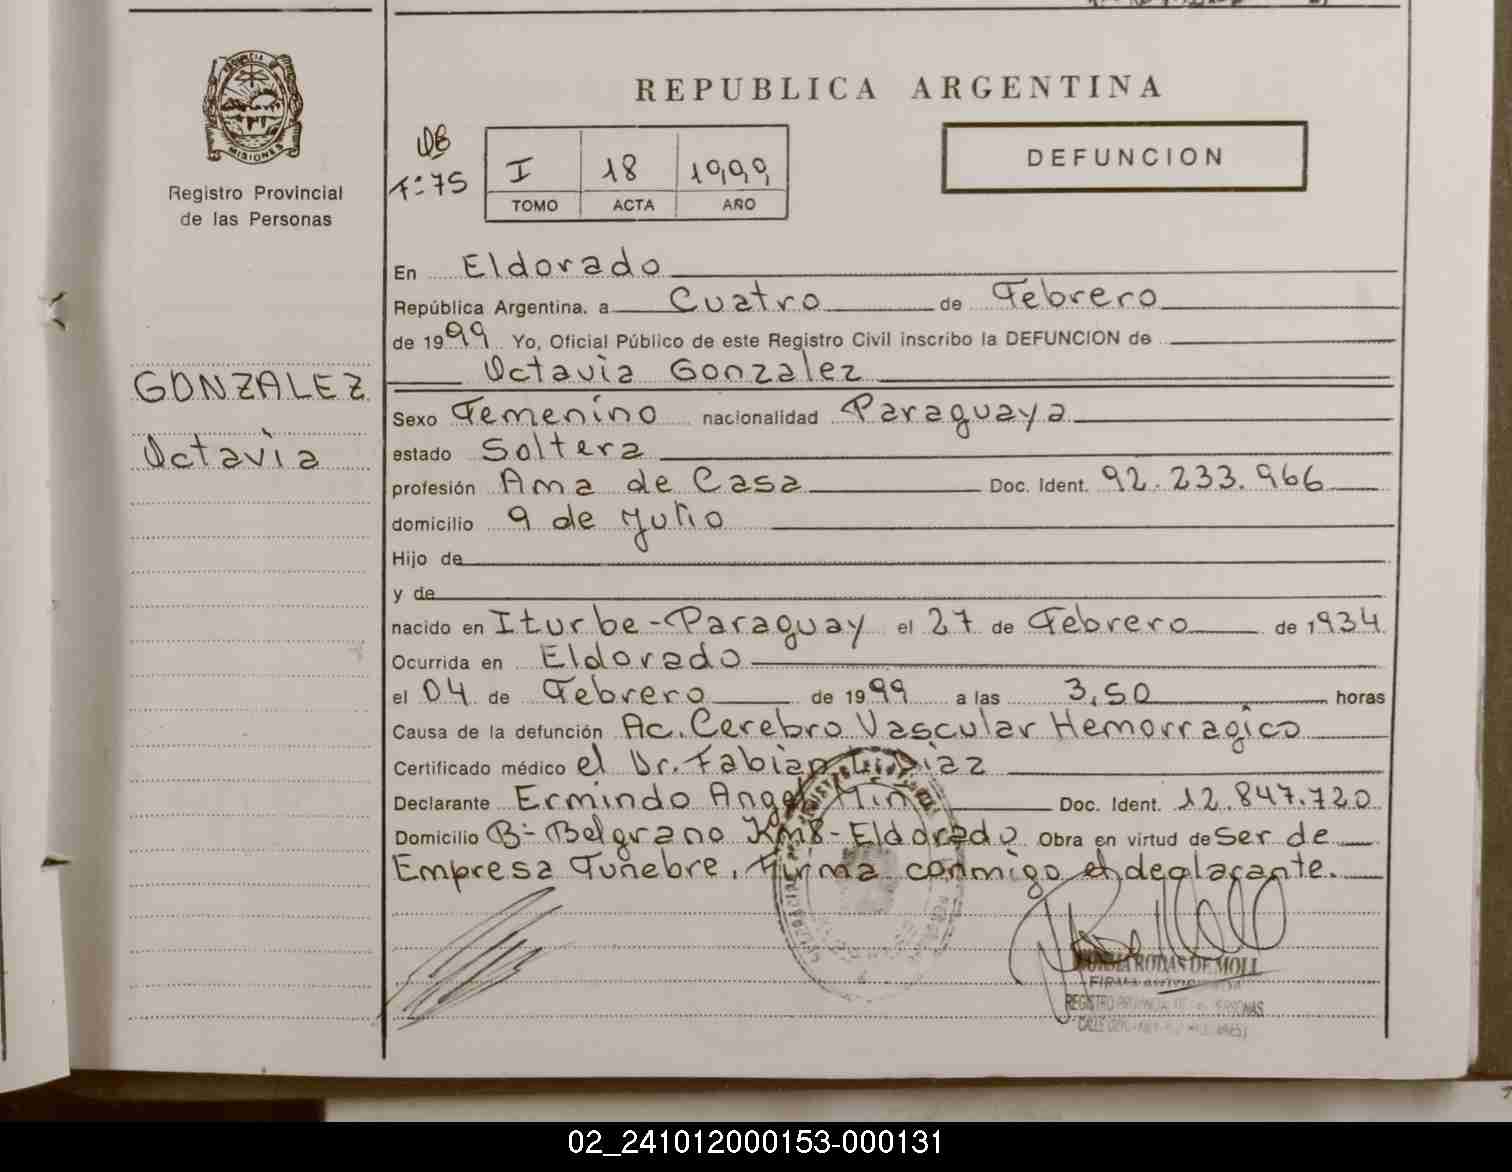 PROVINCIA DE
MISIONES
Registro Provincial
de las Personas
GONZALEZ
Octavia
REPUBLICA ARGENTINA
DEFUNCION
Fº 75
I 18 1999
TOMO ACTA AÑO
En Eldorado
República Argentina, a Cuatro de Febrero
de 1999 Yo, Oficial Público de este Registro Civil inscribo la DEFUNCION de
Octavia Gonzalez
Sexo Femenino nacionalidad Paraguaya
estado Soltera
profesión Ama de Casa Doc. Ident. 92.233.966
domicilio 9 de Julio
Hijo de
y de
nacido en Iturbe-Paraguay el 27 de Febrero de 1934
Ocurrida en Eldorado
el 04 de Febrero de 1999 a las 3,50 horas
Causa de la defunción Ac. Cerebro Vascular Hemorragico
Certificado médico el Dr. Fabian Diaz
Declarante Ermindo Angel Doc. Ident. 12.847.720
Domicilio Bº Belgrano Km8-Eldorado Obra en virtud de Ser de
Empresa Funebre. Firma conmigo el declarante.
RODAS DE MOLL
FIRMA
REGISTRO PROVINCIAL DE LAS PERSONAS
02_241012000153-000131